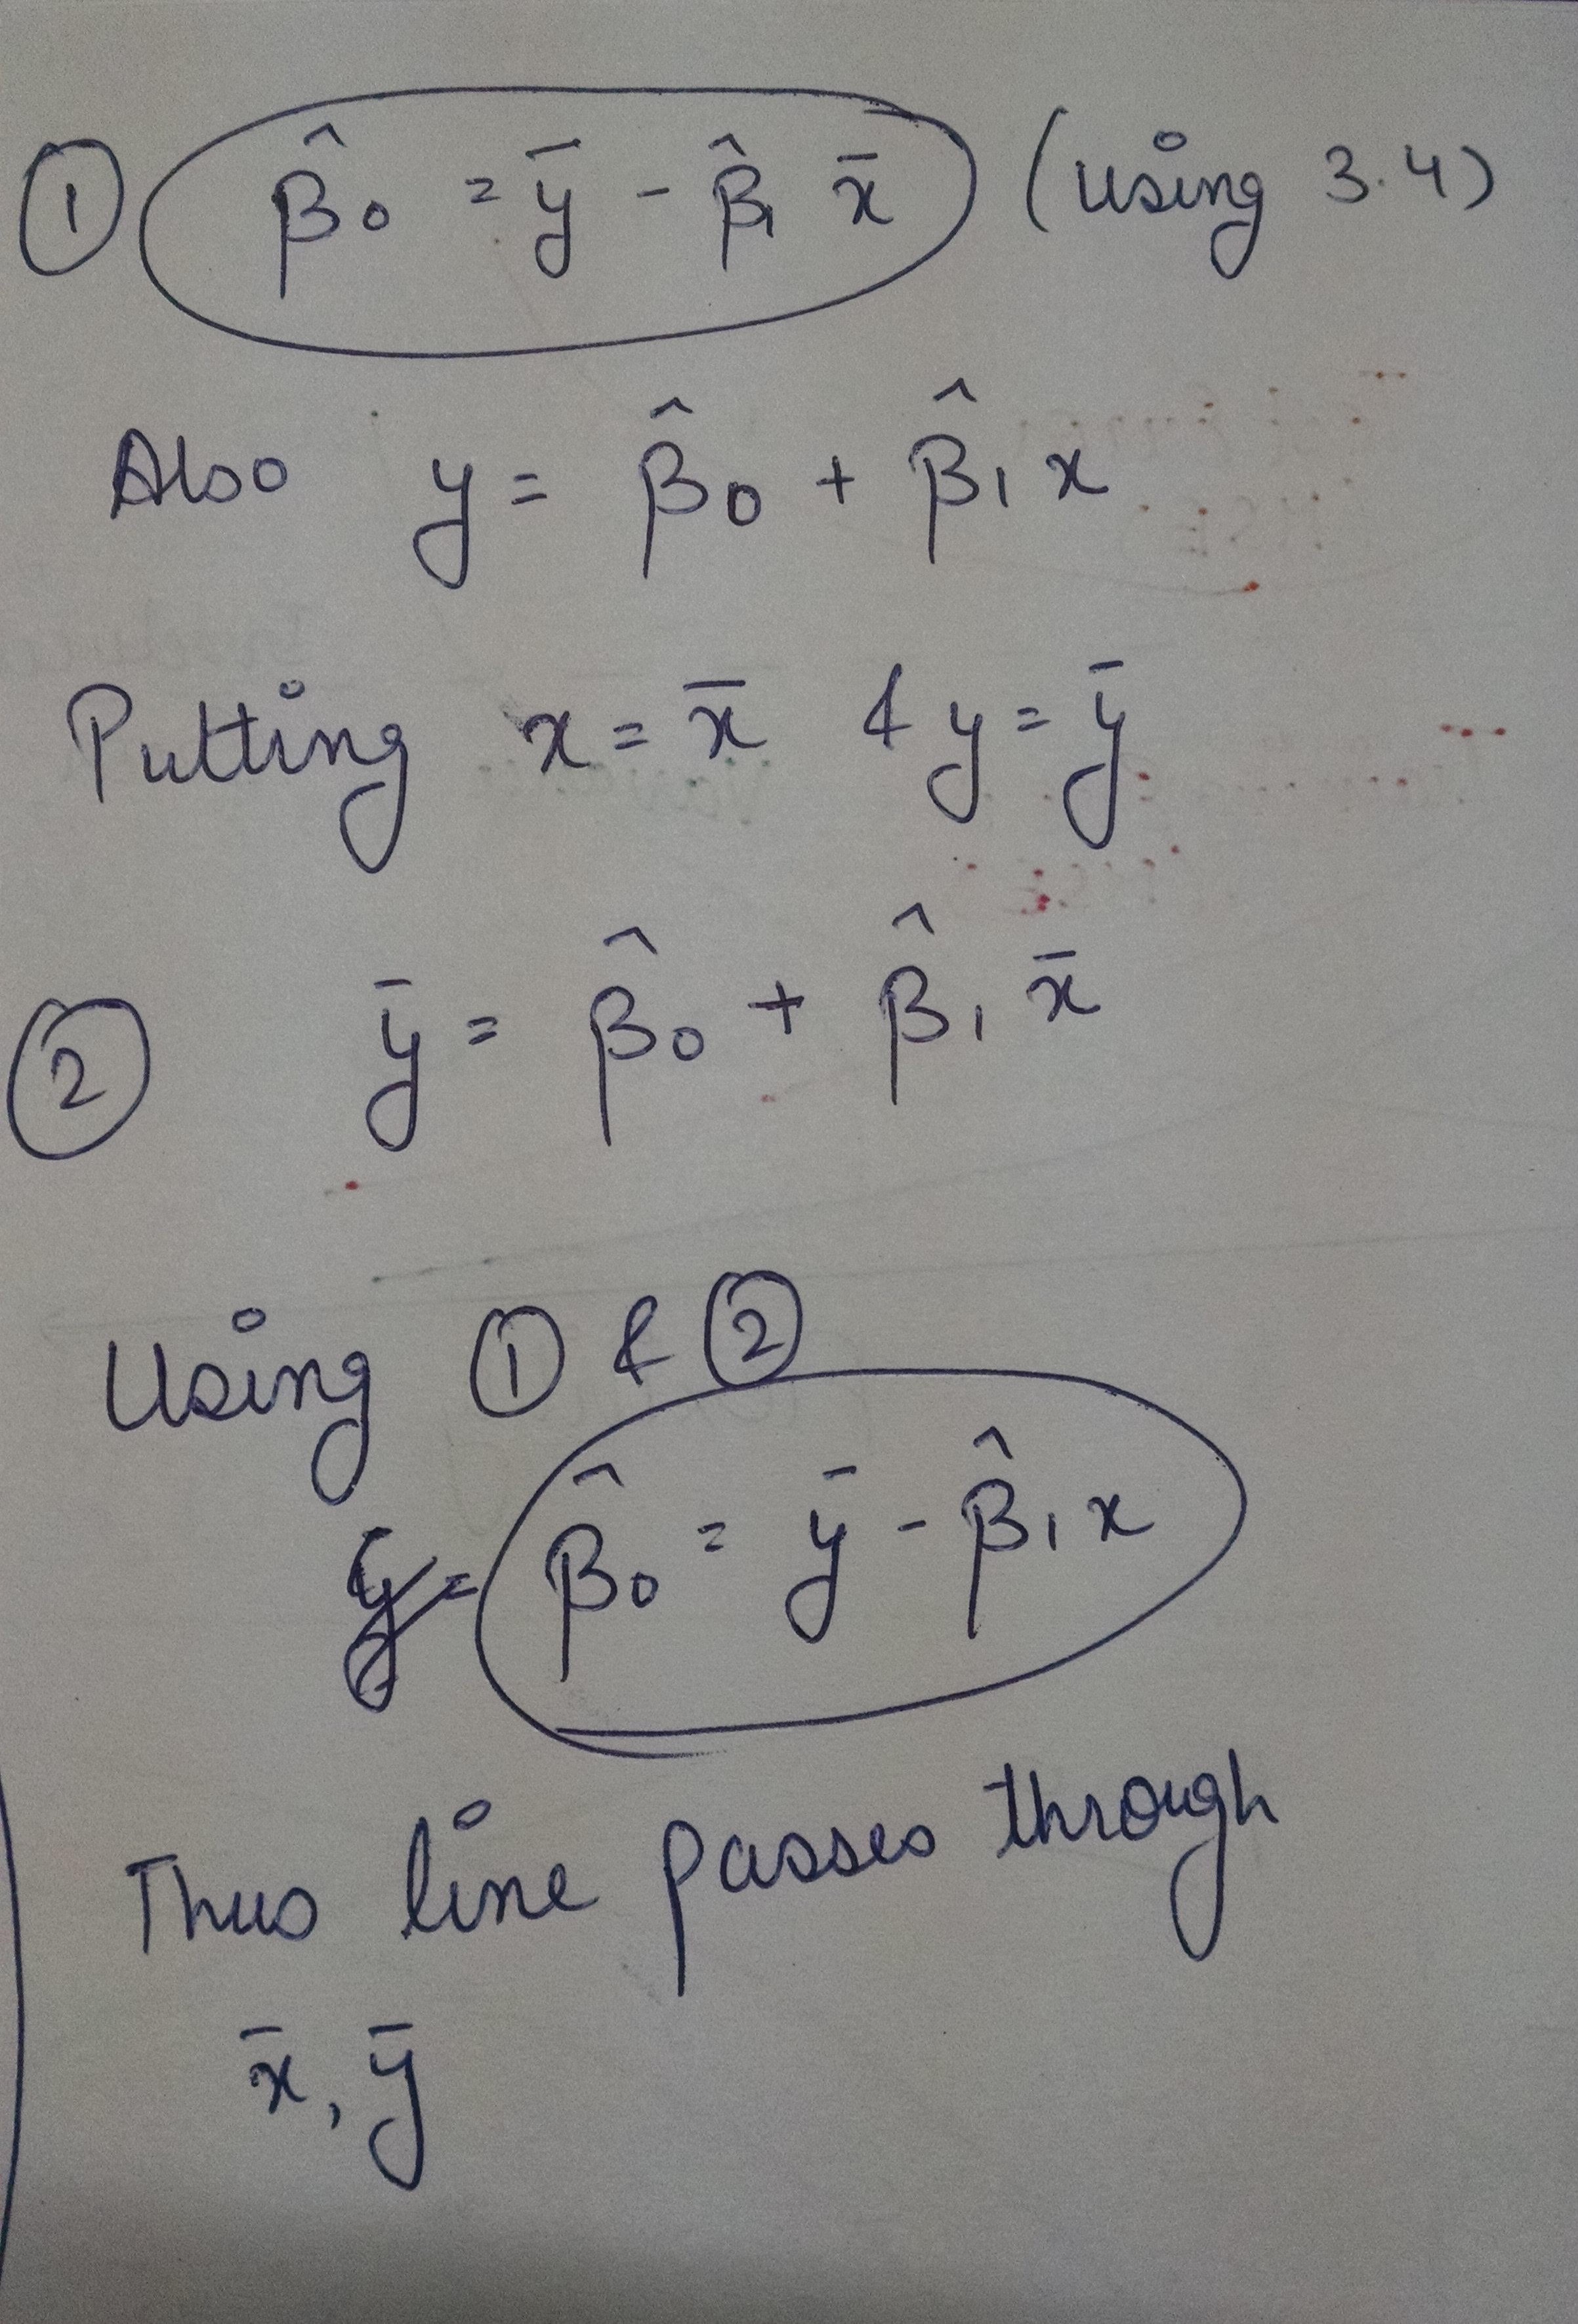 ① β̂₀ = ȳ - β̂₁ x̄ (Using 3.4)
Also y = β̂₀ + β̂₁ x
Putting x = x̄ & y = ȳ
② ȳ = β̂₀ + β̂₁ x̄
Using ① & ②
β̂₀ = ȳ - β̂₁ x
Thus line passes through
x̄, ȳ